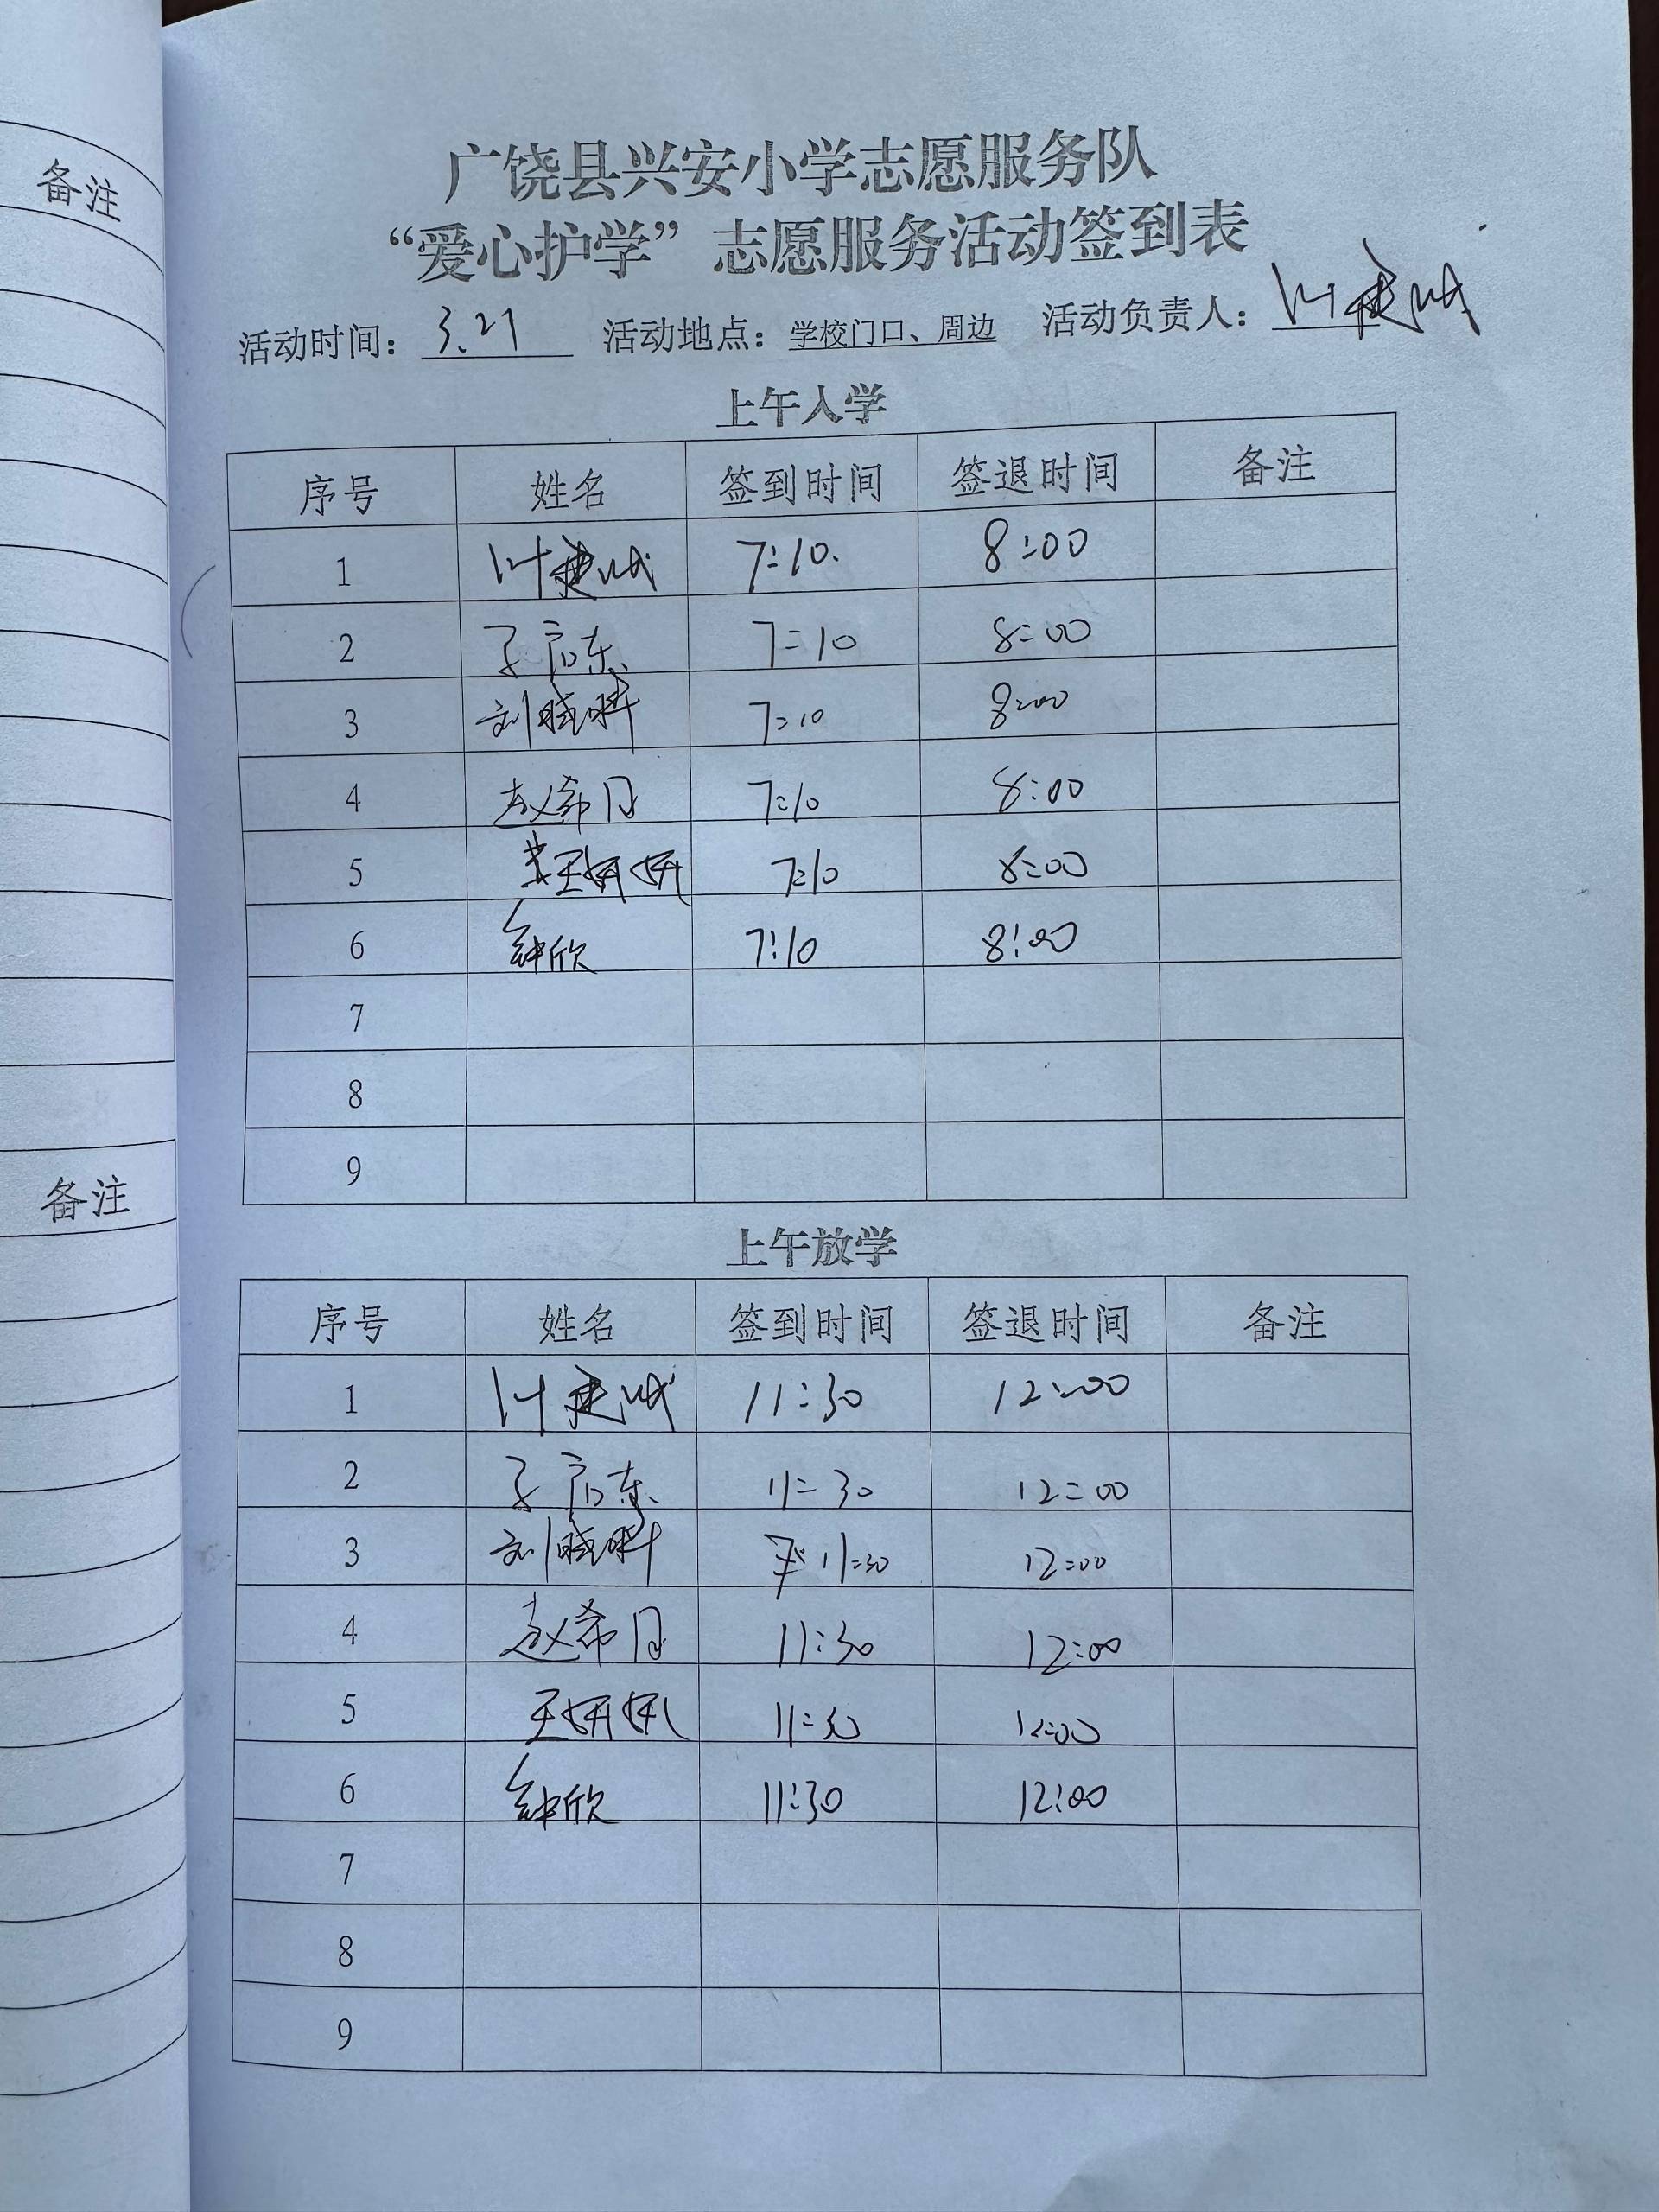 备注
备注
广饶县兴安小学志愿服务队
“爱心护学”志愿服务活动签到表
活动时间： 3.21 活动地点：学校门口、周边 活动负责人：
上午入学
序号 姓名 签到时间 签退时间 备注
1 7:10. 8:00
2 7:10 8:00
3 刘晓晔 7:10 8:00
4 赵希月 7:10 8:00
5 王妍妍 7:10 8:00
6 钟欣 7:10 8:00
7
8
9
上午放学
序号 姓名 签到时间 签退时间 备注
1 11:30 12:00
2 11:30 12:00
3 刘晓晔 11:30 12:00
4 赵希月 11:30 12:00
5 王妍妍 11:30 12:00
6 钟欣 11:30 12:00
7
8
9